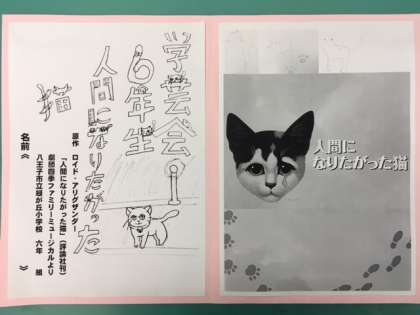 学芸会
6年生
人間になりたがった
猫
原作　ロイド・アリグザンダー
「人間になりたがった猫」(評論社刊)
劇団四季ファミリーミュージカルより
八王子市立緑が丘小学校　六年　組
名前《　　　》
人間に
なりたがった猫